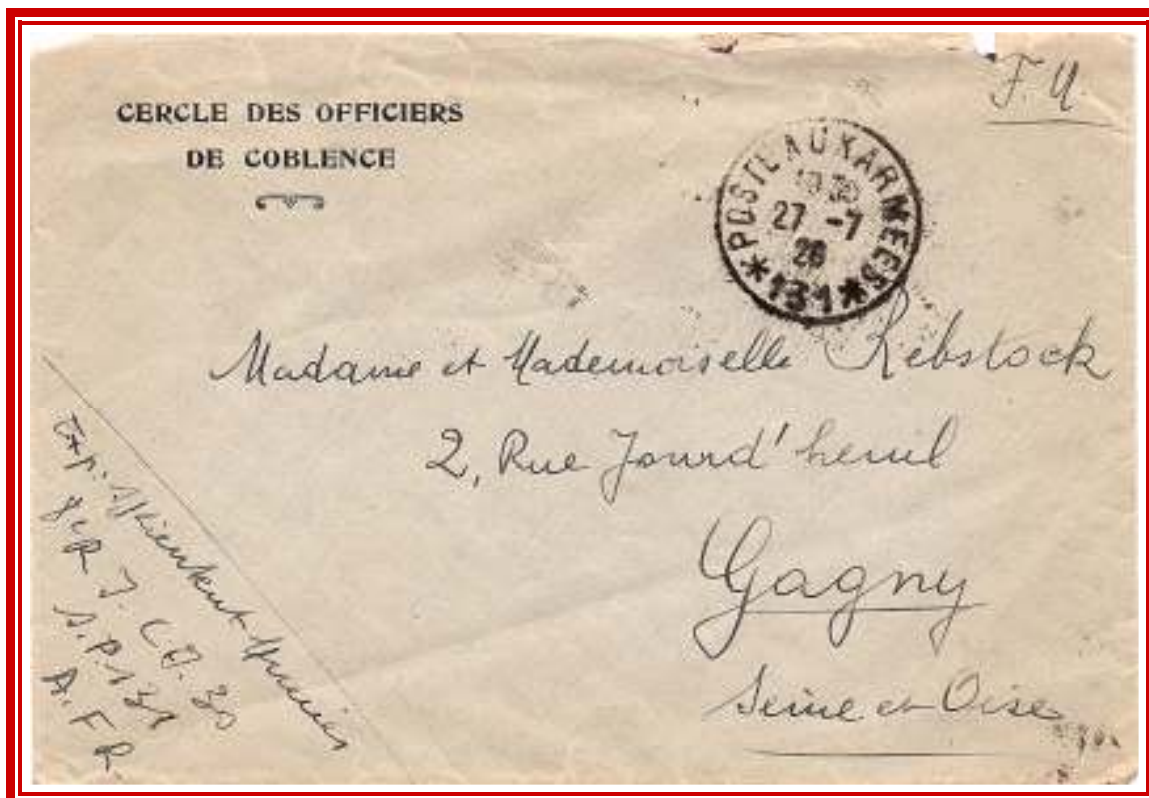 CERCLE DES OFFICIERS
DE COBLENCE
F.M.
POSTE AUX ARMEES
10 30
27 -7
26
*131*
Madame et Mademoiselle Rebstock
2, Rue Jourd'heuil
Gagny
Seine et Oise
Exp:
8e R.I. C.J. 30
S.P. 131
A.F.R.